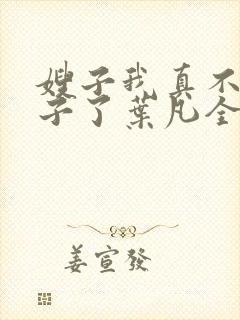 嫂子我真不
子了葉凡全
姜宣發